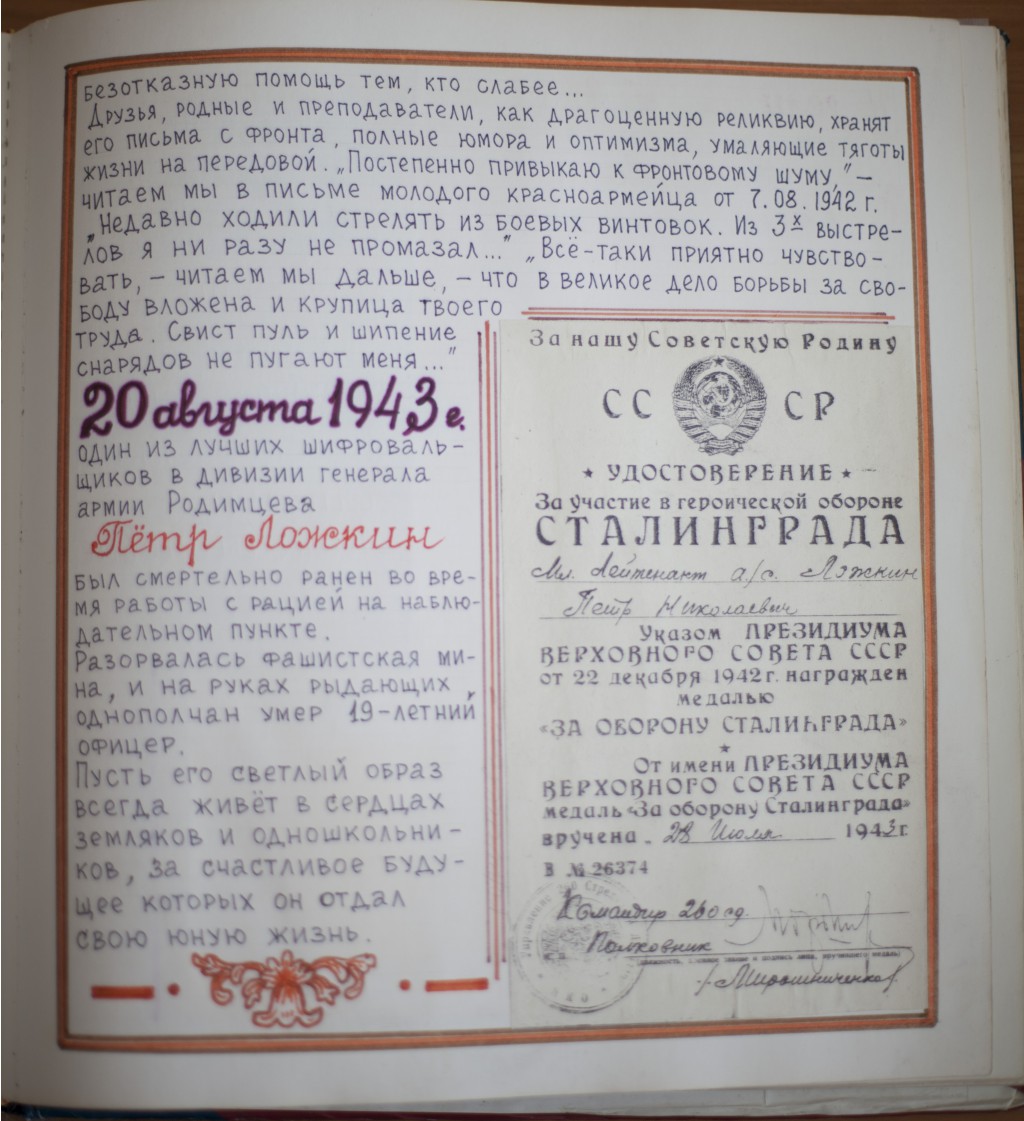 безотказную помощь тем, кто слабее...
Друзья, родные и преподаватели, как драгоценную реликвию, хранят
его письма с фронта, полные юмора и оптимизма, умаляющие тяготы
жизни на передовой. „Постепенно привыкаю к фронтовому шуму," –
читаем мы в письме молодого красноармейца от 7.08.1942 г.
„Недавно ходили стрелять из боевых винтовок. Из 3х выстре-
лов я ни разу не промазал..." „Всё-таки приятно чувство-
вать, – читаем мы дальше, – что в великое дело борьбы за сво-
боду вложена и крупица твоего
труда. Свист пуль и шипение
снарядов не пугают меня..."
20 августа 1943 г.
один из лучших шифроваль-
щиков в дивизии генерала
армии Родимцева
Пётр Ложкин
был смертельно ранен во вре-
мя работы с рацией на наблю-
дательном пункте.
Разорвалась фашистская ми-
на, и на руках рыдающих
однополчан умер 19-летний
офицер.
Пусть его светлый образ
всегда живёт в сердцах
земляков и одношкольни-
ков, за счастливое буду-
щее которых он отдал
свою юную жизнь.
За нашу Советскую Родину
СС СР
★ УДОСТОВЕРЕНИЕ ★
За участие в героической обороне
СТАЛИНГРАДА
Мл. Лейтенант а/с. Ложкин
Петр Николаевич
Указом ПРЕЗИДИУМА
ВЕРХОВНОГО СОВЕТА СССР
от 22 декабря 1942 г. награжден
медалью
«ЗА ОБОРОНУ СТАЛИНГРАДА»
★
От имени ПРЕЗИДИУМА
ВЕРХОВНОГО СОВЕТА СССР
медаль «За оборону Сталинграда»
вручена. 28 Июля 1943 г.
В № 26374
Командир 260 сд.
Полковник
/Мирошниченко/